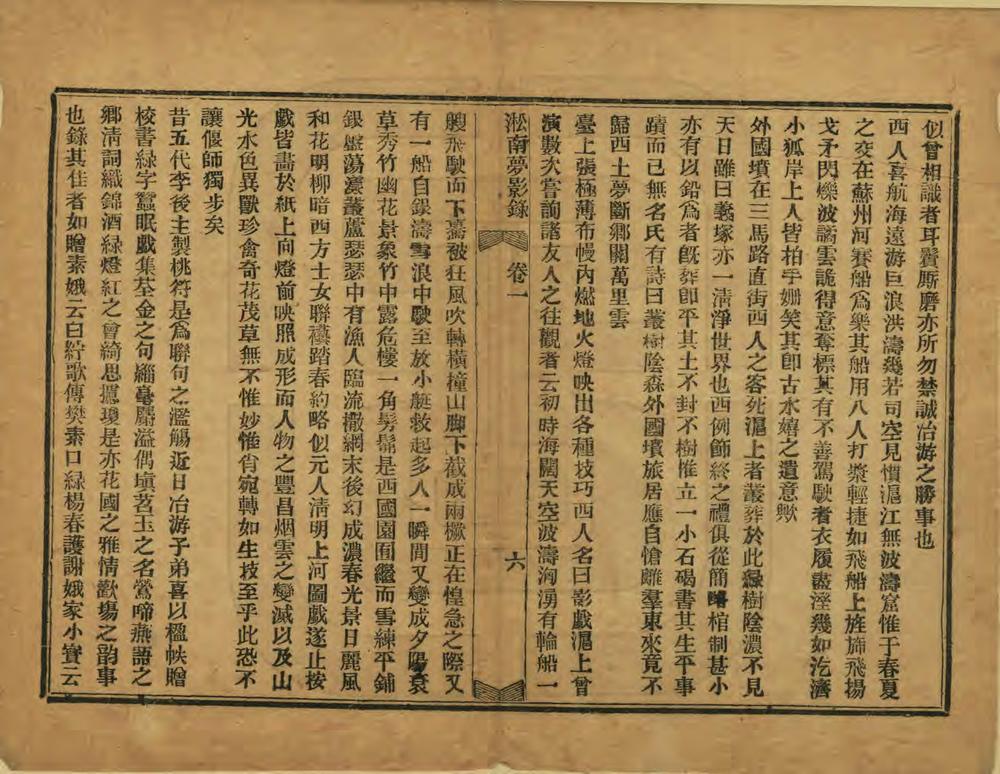 似曾相識者耳鬢厮磨亦所勿禁誠冶游之勝事也
西人喜航海遠游巨浪洪濤幾若司空見慣滬江無波濤窟惟于春夏
之交在蘇州河賽船爲樂其船用八人打槳輕捷如飛船上旌旆飛揚
戈矛閃爍波譎雲詭得意奪標其有不善駕駛者衣履盡溼幾如汔濟
小狐岸上人皆拍手姍笑其卽古水嬉之遺意歟
外國墳在三馬路直街西人之客死滬上者叢葬於此綠樹陰濃不見
天日雖曰義塚亦一淸淨世界也西例飾終之禮俱從簡略棺制甚小
亦有以鉛爲者旣葬卽平其土不封不樹惟立一小石碣書其生平事
蹟而已無名氏有詩曰叢樹陰森外國墳旅居應自愴離羣東來竟不
歸西土夢斷鄉關萬里雲
臺上張極薄布幔內燃地火燈映出各種技巧西人名曰影戲滬上曾
演數次嘗詢諸友人之往觀者云初時海闊天空波濤洶湧有輪船一
淞南夢影錄 卷一 六
艘飛駛而下驀被狂風吹轉橫撞山脚下截成兩橛正在惶急之際又
有一船自銀濤雪浪中駛至放小艇救起多人一瞬間又變成夕陽衰
草秀竹幽花景象竹中露危樓一角髣髴是西國園囿繼而雪練平鋪
銀盤蕩漾叢蘆瑟瑟中有漁人臨流撒網末後幻成濃春光景日麗風
和花明柳暗西方士女聯襼踏春約略似元人淸明上河圖戲遂止按
戲皆畵於紙上向燈前映照成形而人物之豐昌烟雲之變滅以及山
光水色異獸珍禽奇花茂草無不惟妙惟肖宛轉如生技至乎此恐不
讓偃師獨步矣
昔五代李後主製桃符是爲聯句之濫觴近日冶游子弟喜以楹帖贈
校書綠字蠶眠戲集荃金之句緇毫麝溢偶塡茗玉之名鶯啼燕語之
鄉淸詞織錦酒綠燈紅之會綺思攄瓊是亦花國之雅情歡塲之韵事
也錄其佳者如贈素娥云白紵歌傳樊素口綠楊春護謝娥家小寶云